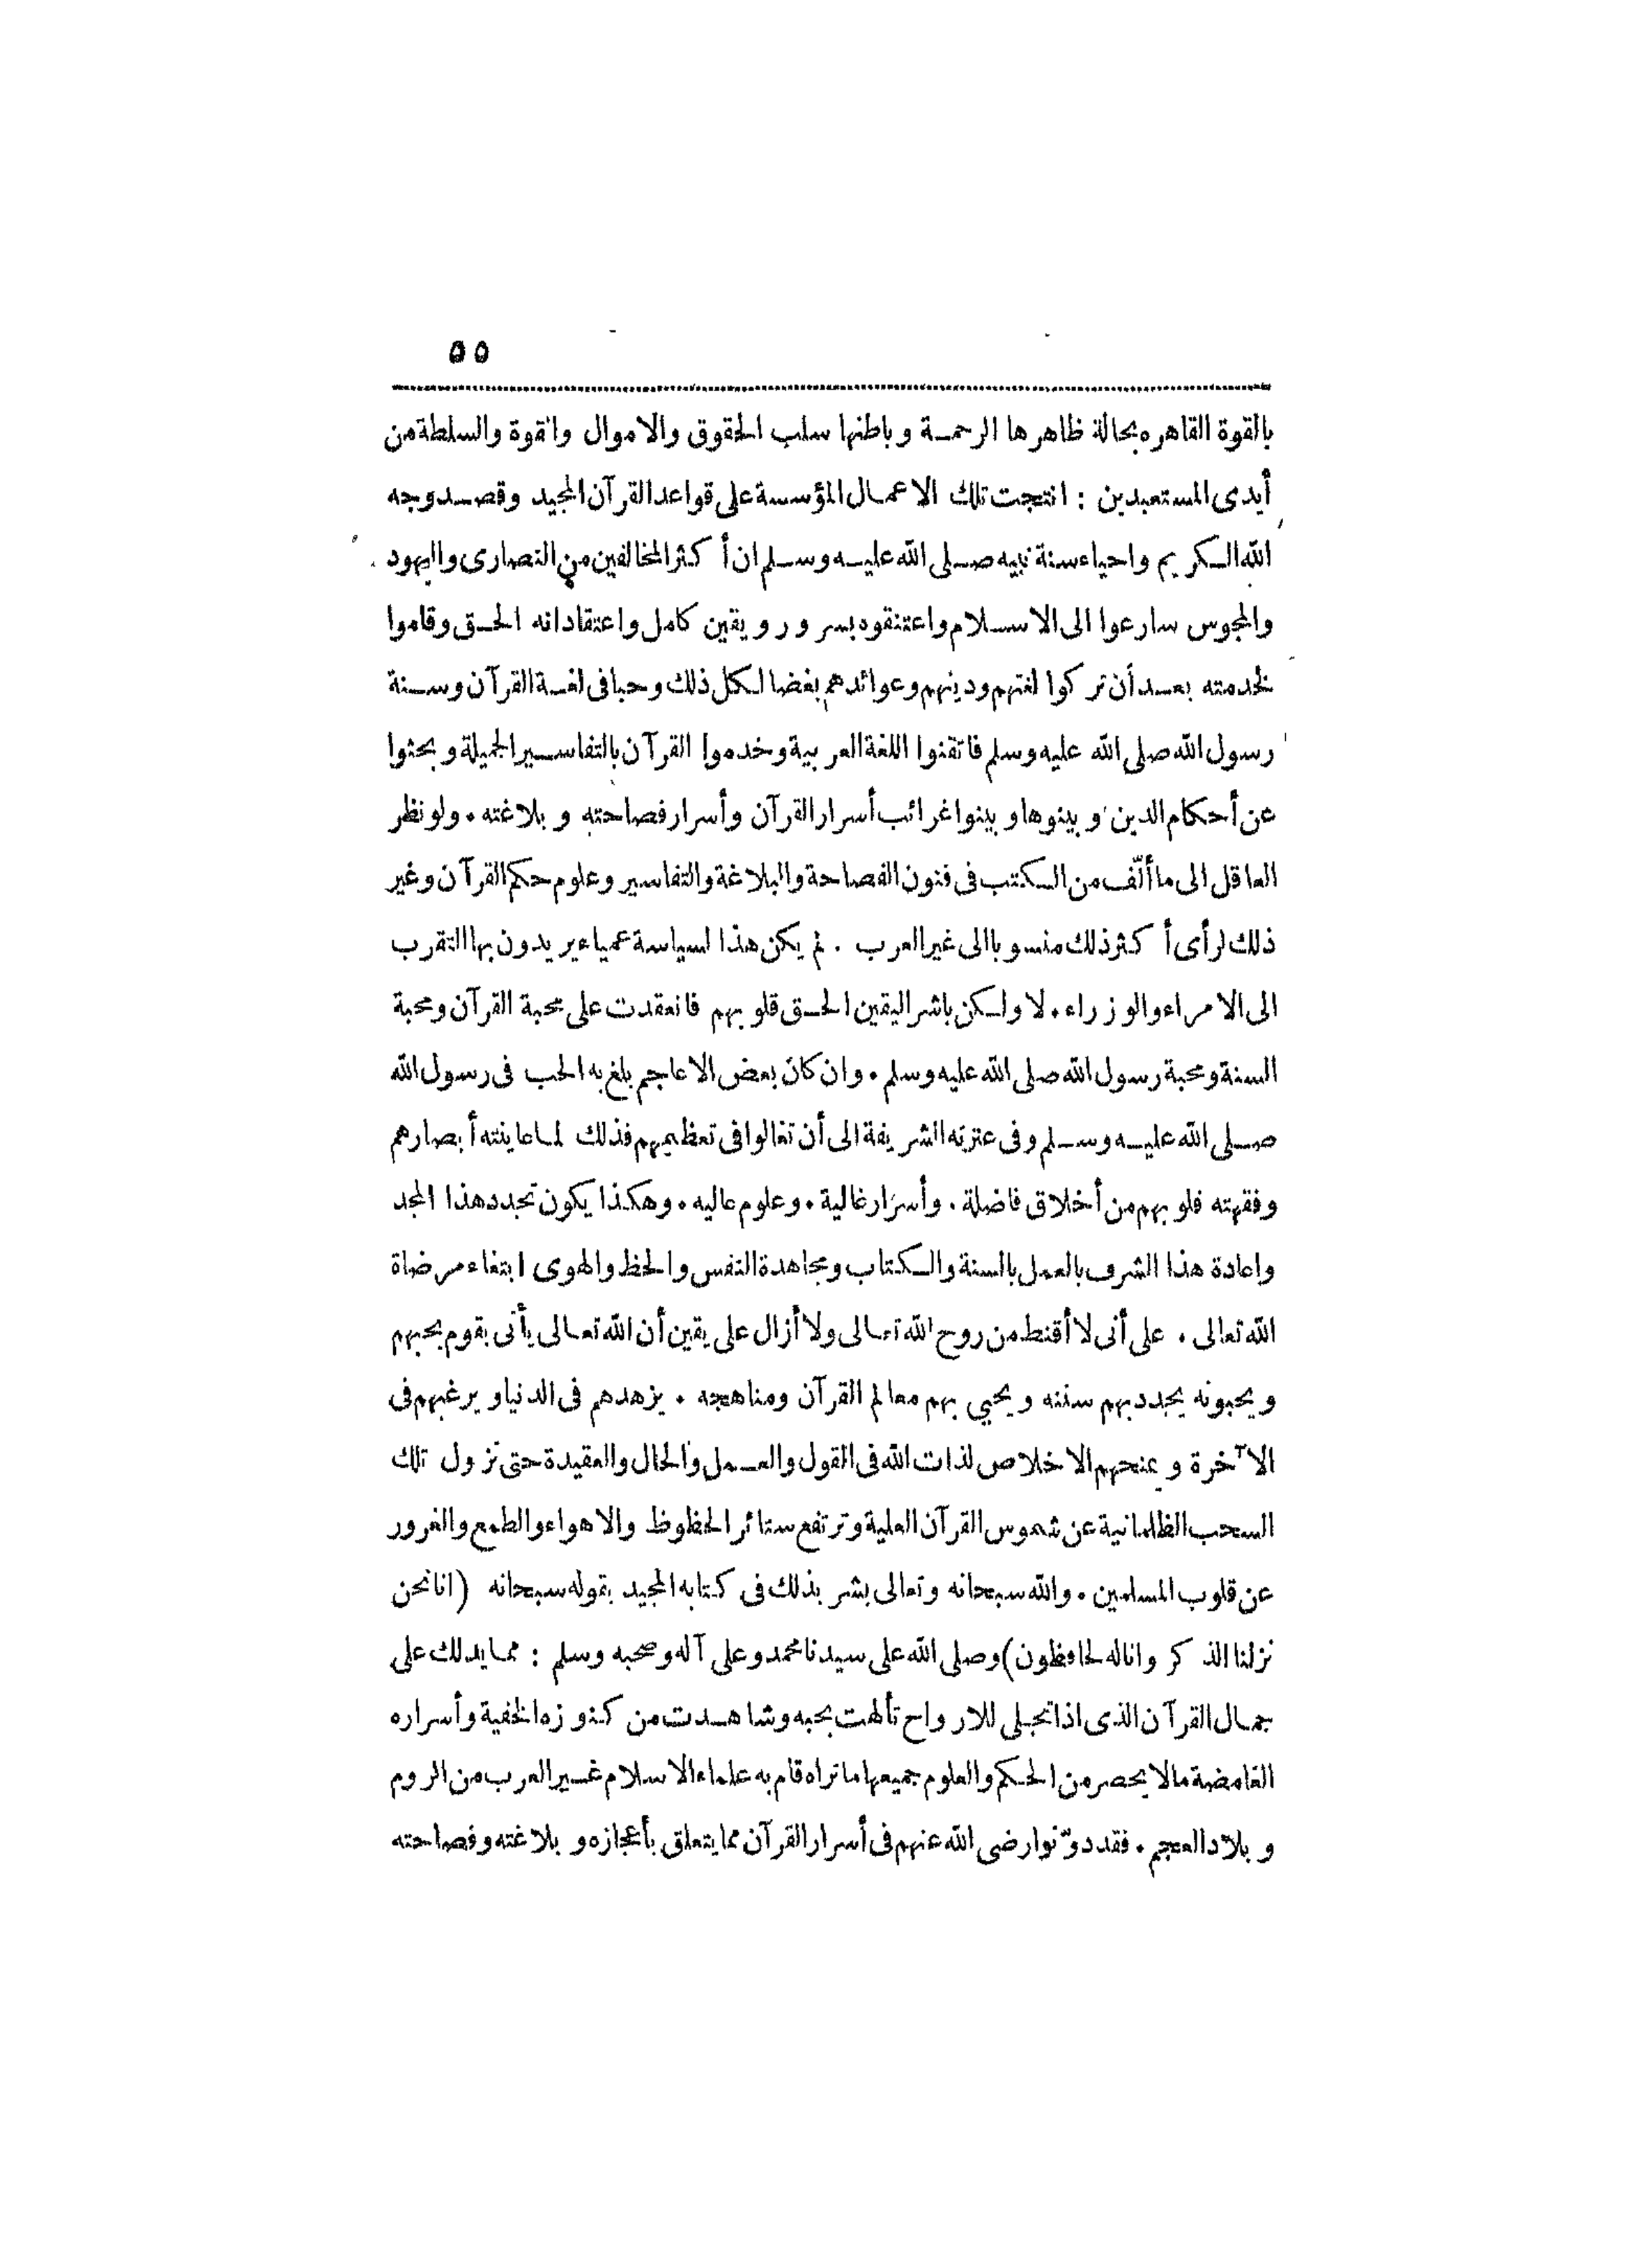 ٥٥
بالقوة القاهره بحالة ظاهرها الرحمة وباطنها سلب الحقوق والاموال والقوة والسلطة من
أيدى المستعبدين : انتجت تلك الاعمال المؤسسة على قواعد القرآن المجيد وقصد وجه
الله الكريم واحياء سنة نبيه صلى الله عليه وسلم ان أكثر المخالفين من النصارى واليهود
والمجوس سارعوا الى الاسلام واعتنقوه بسرور ويقين كامل واعتقاد انه الحق وقاموا
لخدمته بعد أن تركوا لغتهم ودينهم وعوائدهم بغضا لكل ذلك وحبا فى لغة القرآن وسنة
رسول الله صلى الله عليه وسلم فاتقنوا اللغة العربية وخدموا القرآن بالتفاسير الجميلة وبحثوا
عن أحكام الدين وبينوها وبينوا غرائب أسرار القرآن وأسرار فصاحته وبلاغته . ولو نظر
العاقل الى ما ألّف من الكتب فى فنون الفصاحة والبلاغة والتفاسير وعلوم حكم القرآن وغير
ذلك لرأى أكثر ذلك منسوبا الى غير العرب . لم يكن هذا لسياسة عمياء يريدون بها التقرب
الى الامراء والوزراء . لا ولكن باشر اليقين الحق قلوبهم فانعقدت على محبة القرآن ومحبة
السنة ومحبة رسول الله صلى الله عليه وسلم . وان كان بعض الاعاجم بلغ به الحب فى رسول الله
صلى الله عليه وسلم وفى عترته الشريفة الى أن تغالوا فى تعظيمهم فذلك لما عاينته أبصارهم
وفقهته قلوبهم من أخلاق فاضلة . وأسرار غالية . وعلوم عاليه . وهكذا يكون تجدد هذا المجد
واعادة هذا الشرف بالعمل بالسنة والكتاب ومجاهدة النفس والحظ والهوى ابتغاء مرضاة
الله تعالى . على أنى لا أقنط من روح الله تعالى ولا أزال على يقين أن الله تعالى يأتى بقوم يحبهم
ويحبونه يجدد بهم سننه ويحيي بهم معالم القرآن ومناهجه . يزهدهم فى الدنيا ويرغبهم فى
الآخرة ويمنحهم الاخلاص لذات الله فى القول والعمل والحال والعقيدة حتى تزول تلك
السحب الظلمانية عن شموس القرآن العلية وترتفع ستائر الحظوظ والاهواء والطمع والغرور
عن قلوب المسلمين . والله سبحانه وتعالى بشر بذلك فى كتابه المجيد بقوله سبحانه (انا نحن
نزلنا الذكر وانا له لحافظون) وصلى الله على سيدنا محمد وعلى آله وصحبه وسلم : مما يدلك على
جمال القرآن الذى اذا تجلى للارواح تألهت بحبه وشاهدت من كنوزه الخفية وأسراره
الغامضة مالا يحصر من الحكم والعلوم جميعها ما تراه قام به علماء الاسلام غير العرب من الروم
وبلاد العجم . فقد دوّنوا رضى الله عنهم فى أسرار القرآن مما يتعلق بأعجازه وبلاغته وفصاحته